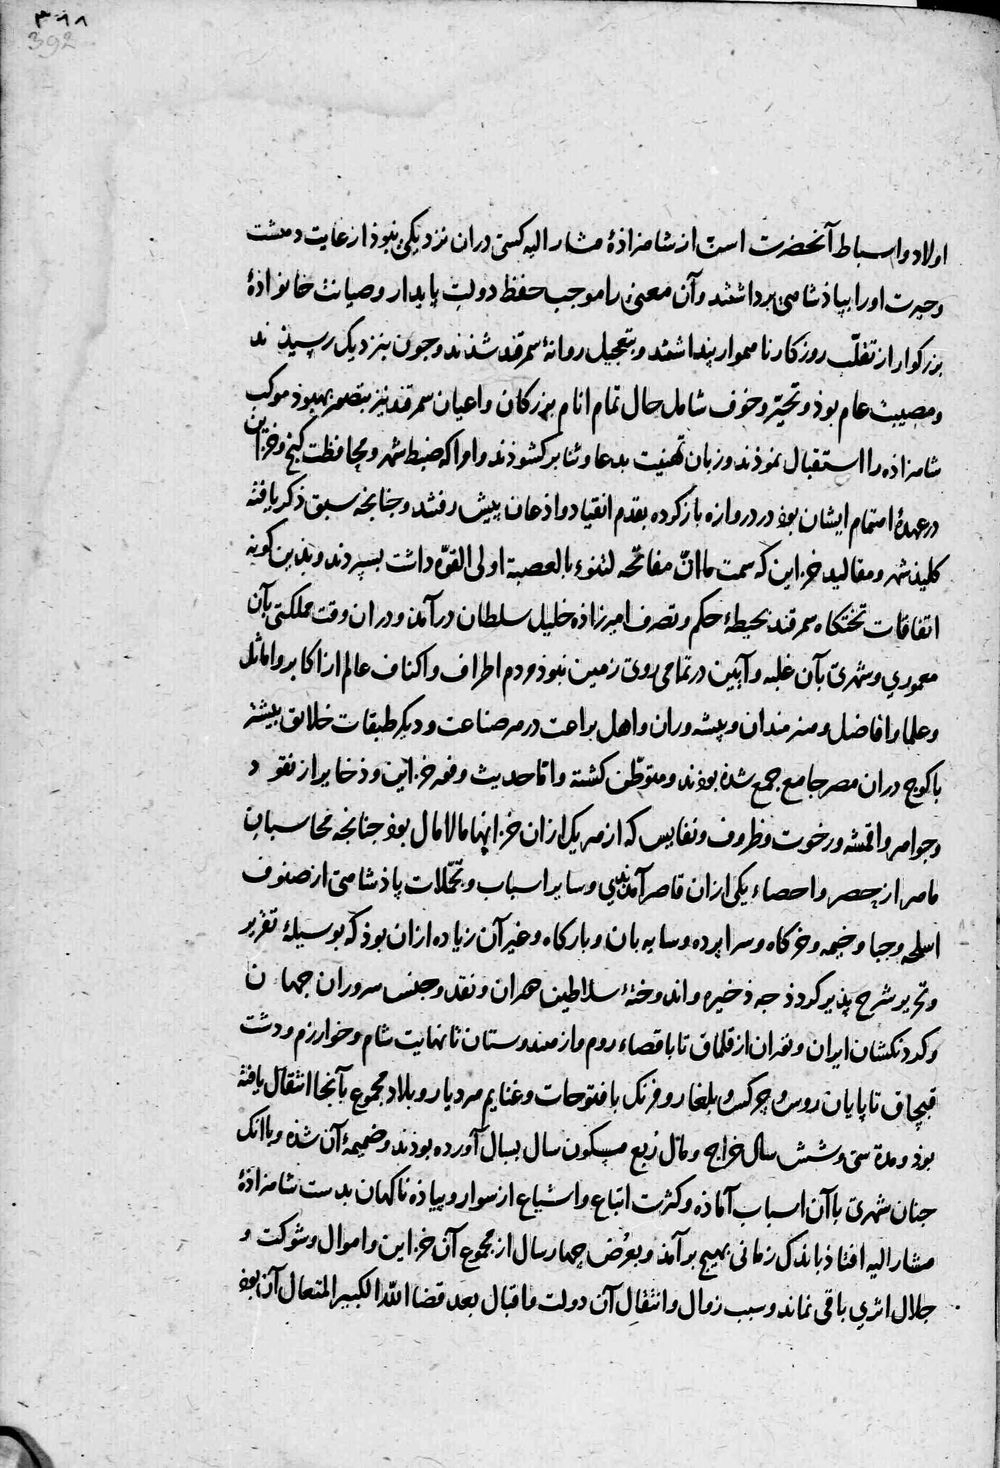 ۳۸۸
392
اولاد و اسباط آنحضرت است از شاهزاذهٔ مشار الیه کسی دران نزدیکی نبوذ از غایت دهشت
و حیرت اورا بپاذشاهی برداشتند و آن معنی را موجب حفظ دولت پایدار و صیانت خانواذهٔ
بزرکوار از تقلّب روزکار ناهموار پنداشتند و بتعجیل روانهٔ سمرقند شذند و جون بنزدیک رسیذند
و مصیبت عام بوذ و تحیّر و خوف شامل حال تمام انام بزرکان و اعیان سمرقند نیز موکب
شاهزاذه را استقبال نموذند و زبان تهنیت بدعا و ثنا برکشوذند و امرا که ضبط شهر و محافظت کنج و خزاین
در عهدهٔ اهتمام ایشان بوذ در دروازه باز کرده بقدم انقیاد و اذعان پیش رفتند و جنانجه سبق ذکر یافته
کلیذ شهر و مقالید خزاین که سمت ما انّ مفاتحه لتنوء بالعصبة اولی القوّه داشت بسپردند و بذین کونه
اتفاقات تختکاه سمرقند بحیطهٔ حکم و تصرف امیرزاذه خلیل سلطان درآمذ و دران وقت مملکتی بآن
معموری و شهری بآن غلبه و آیین در تمامی روی زمین نبوذ و مردم اطراف و اکناف عالم از اکابر و اماثل
و علما و افاضل و هنرمندان و پیشه وران و اهل براعت در هر صناعت و دیکر طبقات خلایق بیشتر
باکوج دران مصر جامع جمع شذه بوذند و متوطّن کشته و اما حدیث وفور خزاین و ذخایر از نقود
و جواهر و اقمشه و رخوت و ظروف و نفایس که از هر یک ازان خزانها مالامال بوذ جنانجه محاسبان
ماهر از حصر و احصاء یکی ازان قاصر آمدندی و سایر اسباب و تجمّلات پاذشاهی از صنوف
اسلحه و جبا و خیمه و خرکاه و سراپرده و سایه بان و بارکاه و غیر آن زیاده ازان بوذ که بوسیلهٔ تقریر
و تحریر شرح پذیر کردذ جه ذخیره و اندوختهٔ سلاطین و نقد و جنس سروران جهان
و کردنکشان ایران و توران از قلماق تا باقصاء روم و از هندوستان تا نهایت شام و خوارزم و دشت
قبجاق تا پایان روس و جرکس و بلغار و فرنک با فتوحات و غنایم هر دیار و بلاد مجموع بآنجا انتقال یافته
بوذ و مدة سی و شش سال خراج و مال ربع مسکون سال بسال آورده بوذند و ضمیمهٔ آن شذه و باانک
جنان شهری باآن اسباب آماذه و کثرت اتباع و اشیاع از سوار و پیاذه ناکهان بدست شاهزاذهٔ
مشار الیه افتاذ باندک زمانی بهیج برآمذ و بعرض جهار سال از مجموع آن خزاین و اموال و شوکت و
جلال اثری باقی نماند و سبب زوال و انتقال آن دولت و اقبال بعد قضا اللّه الکبیر المتعال آن بوذ